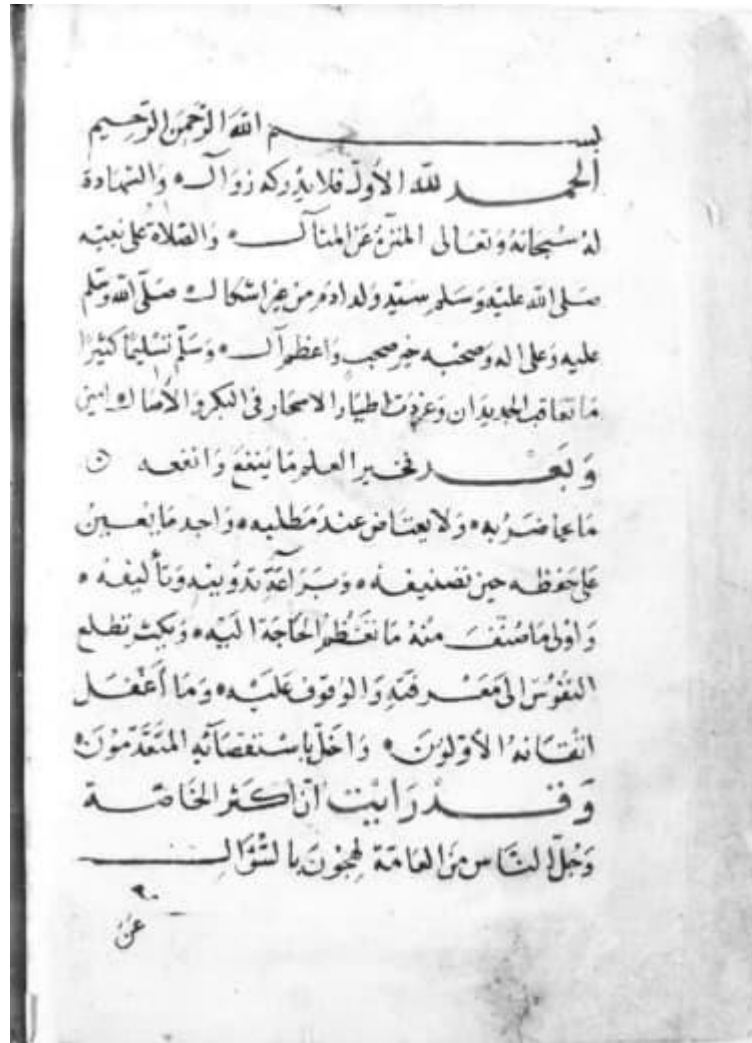 بسم الله الرحمن الرحيم
الحمد لله الاول فلا يدركه زوال ه والشهادة
له سبحانه وتعالى المنزه عن المثال ه والصلاة على نعيته
صلى الله عليه وسلم سيد ولد ادم من خير اشكال صلى الله وسلم
عليه وعلى اله وصحبه خير صحب واعظم آل ه وسلم تسليما كثيرا
ما تعاقب الجديدان وغردت اطيار الاسحار في البكر والاصال امين
وبعد فخير العلم ما ينفع وانفعه ه
ضربه ه ولا يعتاض عند مطلبه ه واجد ما يعين
على حفظه حين تصنيفه ه وبراعة تدوينه وتأليفه ه
واولى ما صنف منه ما تعظم الحاجة اليه ه ويكثر تطلع
النفوس الى معرفته والوقوف عليه ه وما أغفل
اتقانه الأولون ه واخل باستقصآئه المتقدمون ه
وقد رايت ان اكثر الخاصة
وجل الناس من العامة لهجون بالسؤال
عن